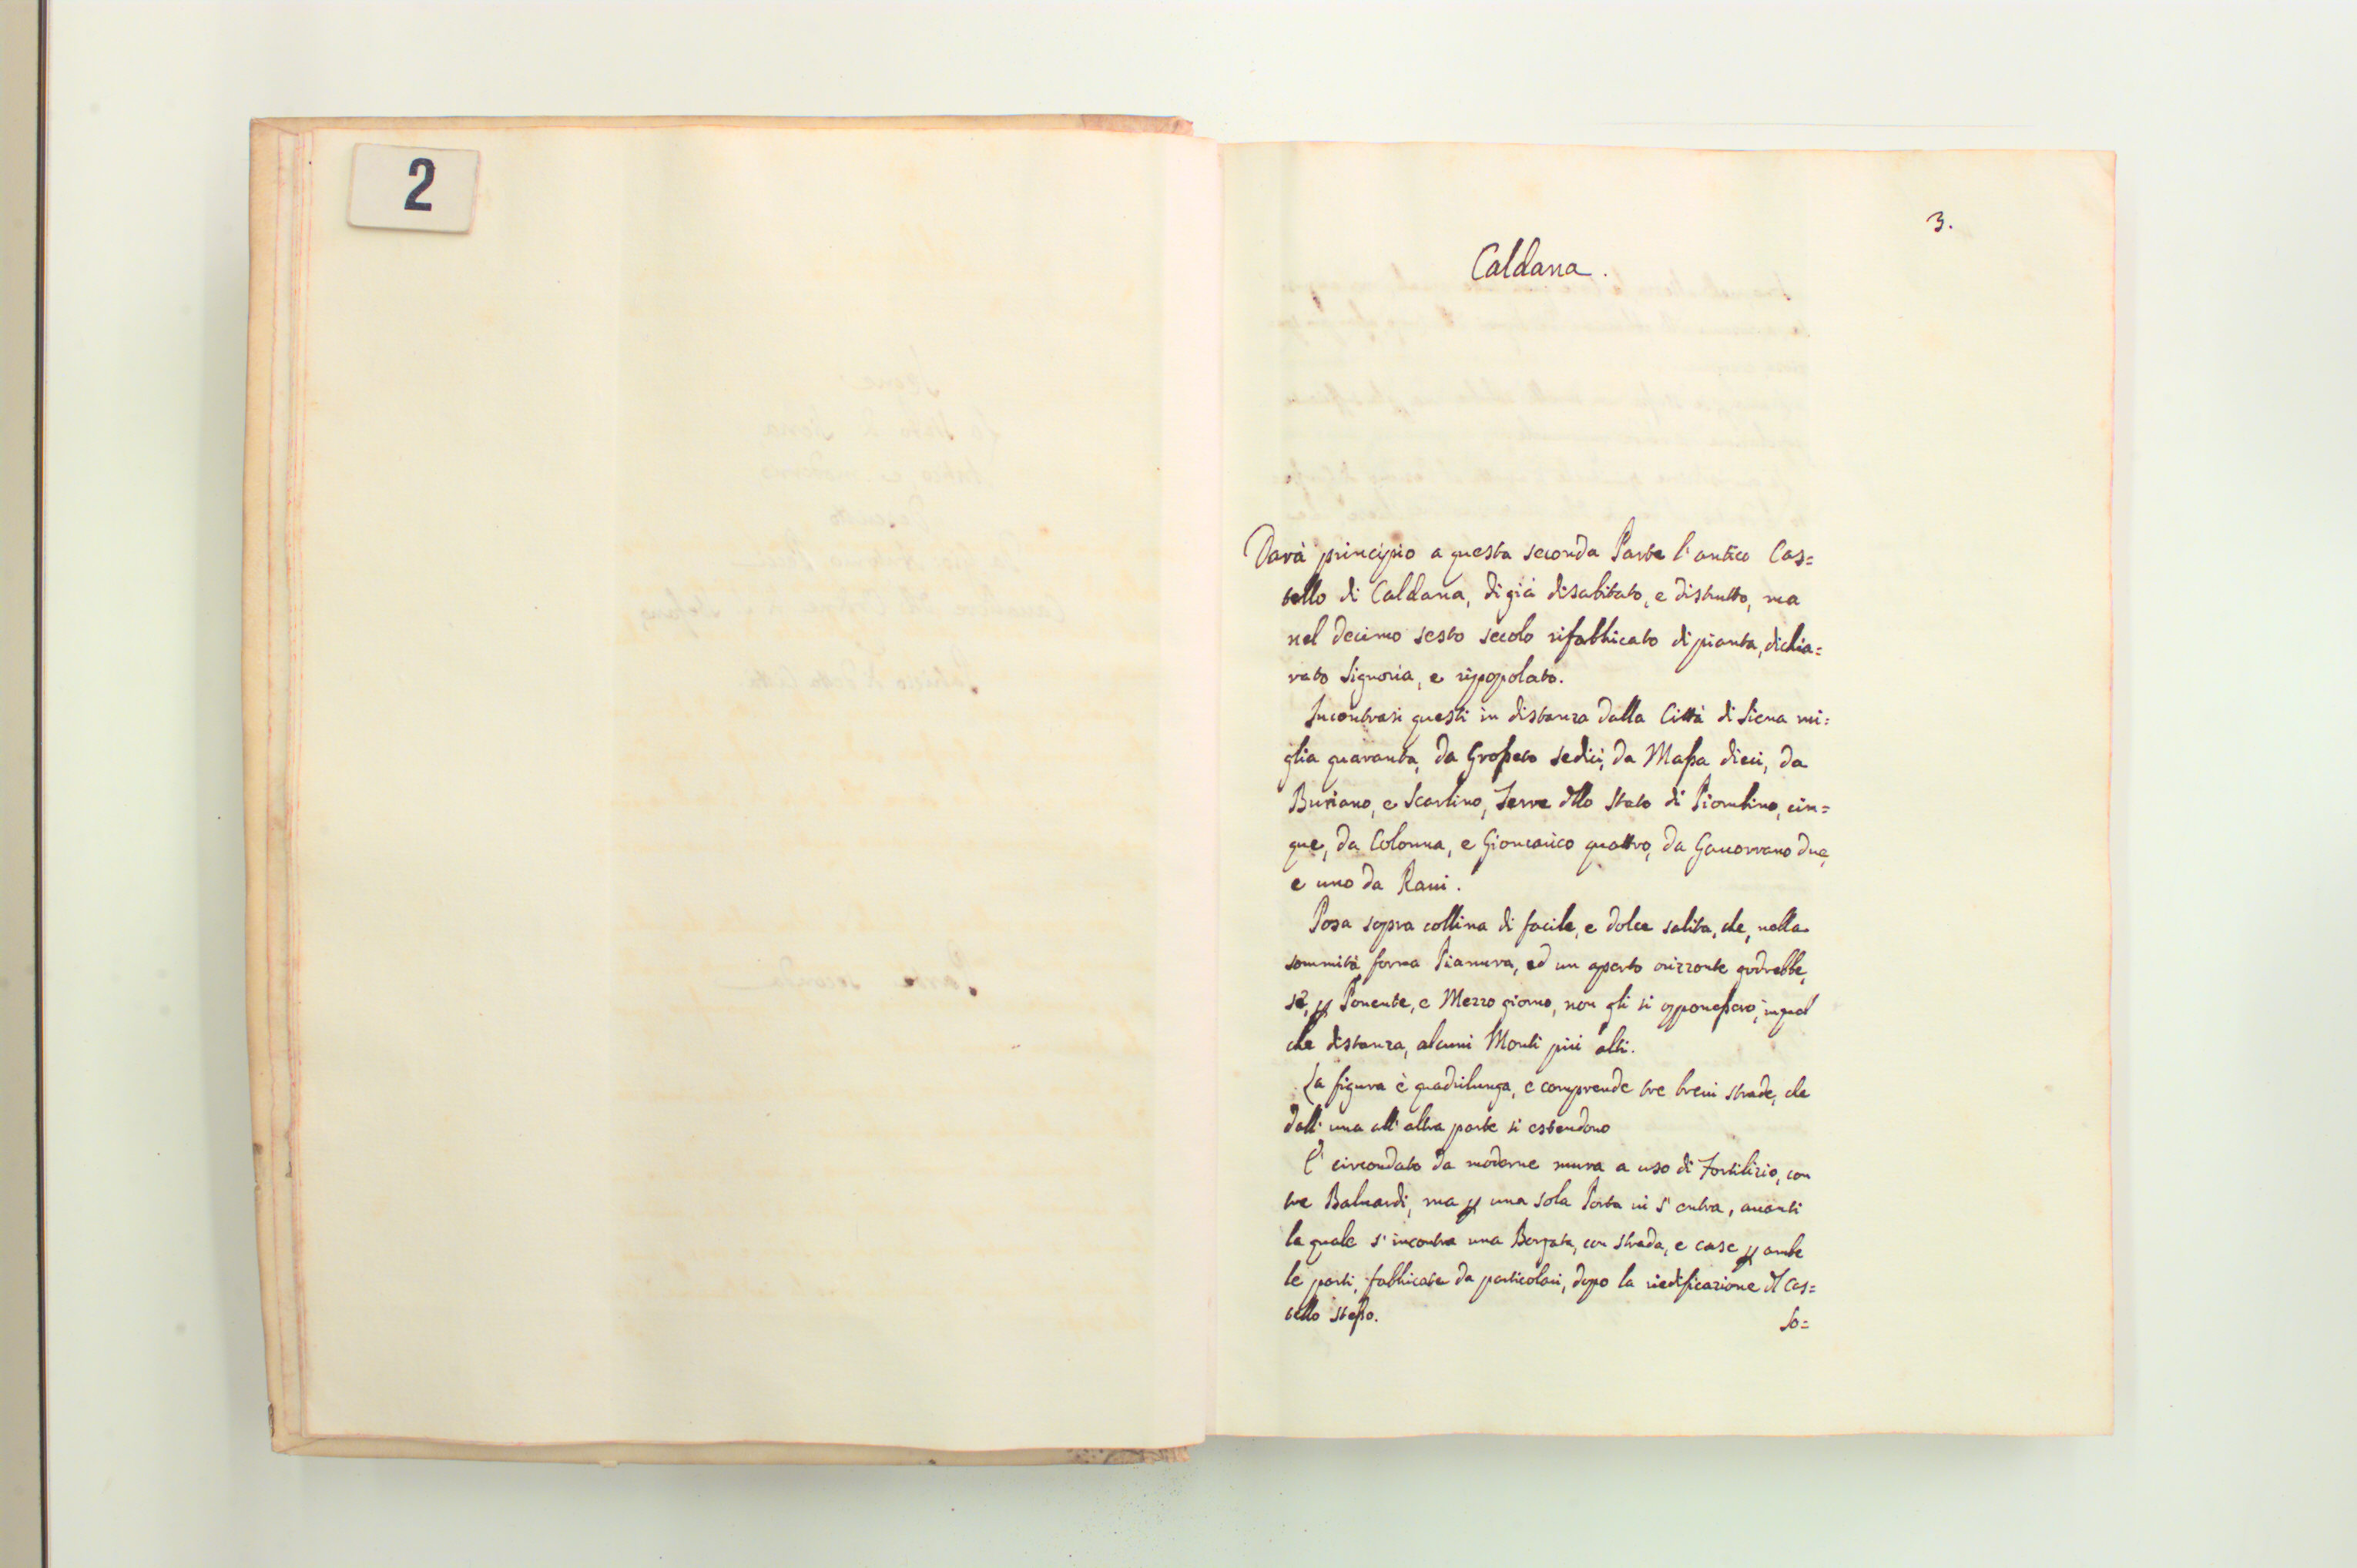 2
3.
Caldana.
Darà principio a questa seconda Parte l'antico Cas=
tello di Caldana, di già disabitato, e distrutto, ma
nel decimo sesto secolo rifabbricato di pianta, dichia=
rato Signoria, e ripopolato.
Incontrasi questi in distanza dalla Città di Siena mi=
glia quaranta, da Grosseto sedici, da Massa dieci, da
Buriano, e Scarlino, Terre dello Stato di Piombino, cin=
que, da Colonna, e Gioncarico quattro, da Gavorrano due,
e uno da Ravi.
Posa sopra collina di facile, e dolce salita, che, nella
sommità forma Pianura, ed un aperto orizzonte godrebbe,
se, p Ponente, e Mezzo giorno, non gli si opponessero, in qual
che distanza, alcuni Monti più alti.
La figura è quadrilunga, e comprende tre brevi strade, che
dall'una all'altra parte si estendono
E' circondato da moderne mura a uso di Fortilizio, con
tre Baluardi, ma p una sola Porta vi s'entra, avanti
la quale s'incontra una Borgata, con strada, e case p ambe
le parti, fabbricate da particolari, dopo la riedificazione del Cas=
tello stesso.
So=